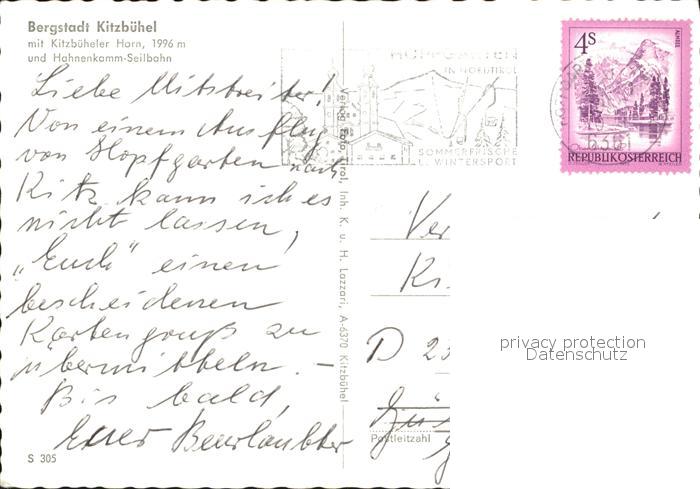 Bergstadt Kitzbühel
mit Kitzbüheler Horn, 1996 m
und Hahnenkamm-Seilbahn
Liebe Mitstreiter!
Von einem Ausflug
von Hopfgarten nach
Kitz kann ich es
nicht lassen,
„Euch“ einen
bescheidenen
Kartengruß zu
übermitteln. –
Bis bald,
Euer Beurlaubter
S 305
Verlag Foto Tirol, Inh. K. u. H. Lazzari, A-6370 Kitzbühel
HOPFGARTEN
IN NORDTIROL
SOMMERFRISCHE
U. WINTERSPORT
4S
ALMSEE
REPUBLIK ÖSTERREICH
Ver
Kr.
D 23
Postleitzahl
privacy protection
Datenschutz